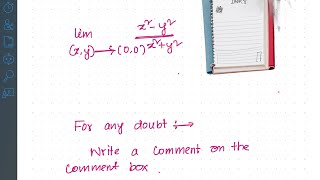 lim x²-y²
(x,y)→(0,0) x²+y²
For any doubt :→
Write a comment on the
comment box.